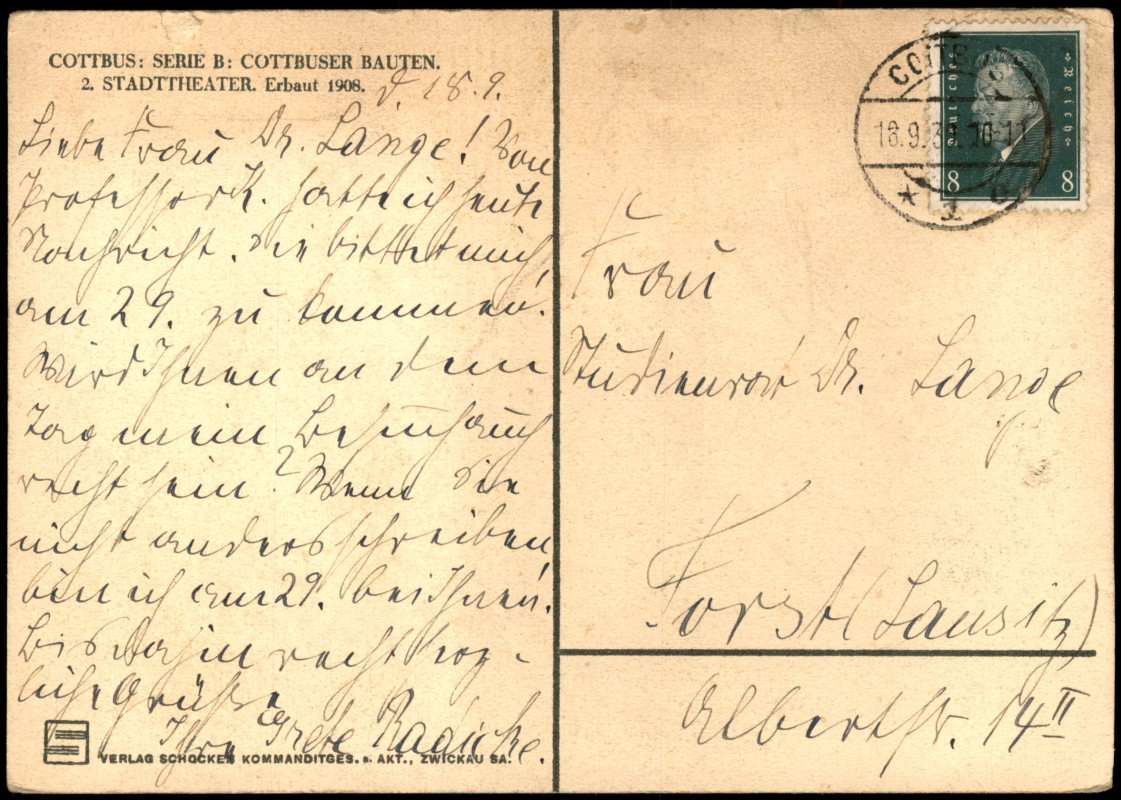 COTTBUS: SERIE B: COTTBUSER BAUTEN.
2. STADTTHEATER. Erbaut 1908.
d. 18.9.
Liebe Frau Dr. Lange! Von
Professor K. hatte ich heute
Nachricht. Sie bittet mich,
am 29. zu kommen.
Wird Ihnen an dem
Tag mein Besuch auch
recht sein? Wenn Sie
nicht anders schreiben,
bin ich am 29. bei Ihnen.
Bis dahin recht herz-
liche Grüße
Ihre Grete
VERLAG SCHOCKEN KOMMANDITGES. a. AKT., ZWICKAU SA.
Deutsches Reich
8 8
18.9.30. 10-11
Frau
Studienrat Dr. Lange
Forst (Lausitz)
Albertstr. 14 II